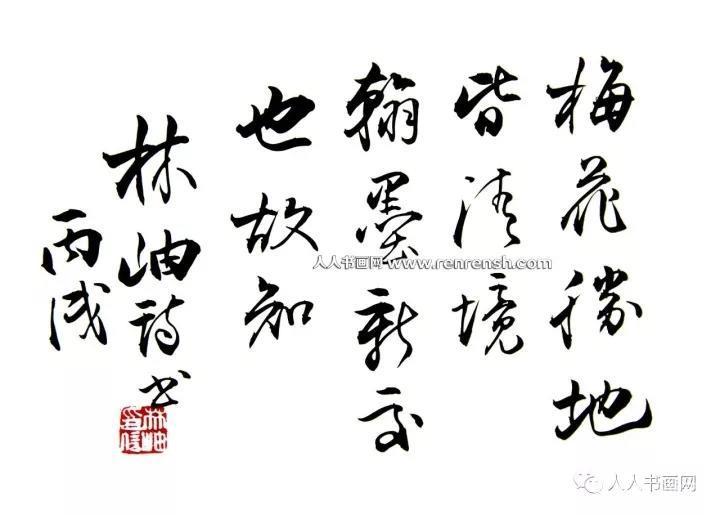 梅花勝地
皆清境
翰墨新交
也故知
林岫詩书
丙戌
人人书画网 www.renrensh.com
人人书画网